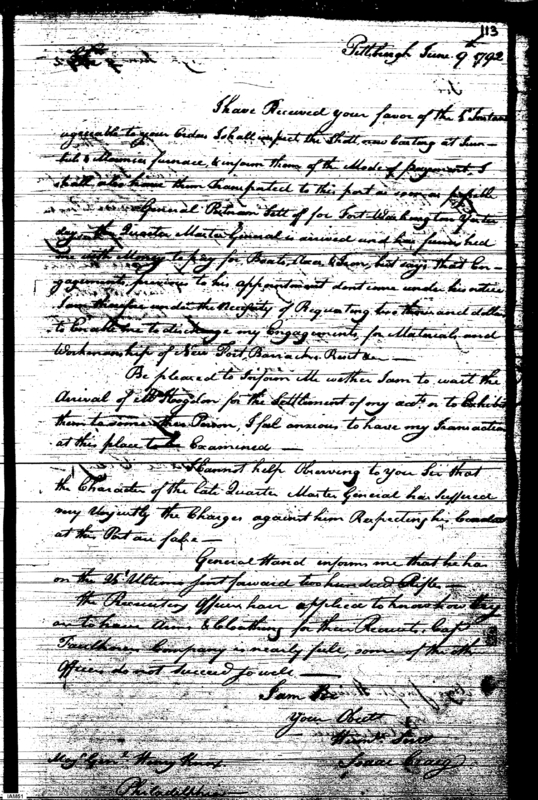 113
Pittsburgh June 9th 1792
Sir
I have Received your favor of the 1st Instant
agreeable to your Orders I shall inspect the Shott now Casting at Turn-
bull & Marmies furnace, & inform them of the Mode of payment, I
shall also have them Transported to this post as soon as possible
General Putnam Sett off for Fort Washington Yester
day, the Quarter Master General is arrived and has furnished
me with Money to pay for Boats, &
but says that En-
gagements previous to his appointment dont come under his notice
I am therefore under the Necessity of Requesting two thousand dollars
to Enable me to discharge my Engagements, for Materials and
Workmanship of New Fort, Barracks &c —
Be pleased to Inform Me wether I am to wait the
Arrival of Mr Hodgdon for the Settlement of my accts or to Exhibit
them to some other Person, I feel anxious to have my Transactions
at this place to be Examined —
I Cannot help Observing to you Sir that
the Character of the late Quarter Master General has Suffered
very Unjustly the Charges against him Respecting his Conduct
at this Post are false —
General Hand informs me that he has
on the 25th Ultimo sent forward two hundred Rifles —
the Recruiting Officers have applied to know how they
are to have Arms & Cloathing for their Recruits, Capt
Faulkners Company is nearly full, some of the other
Officers do not succeed so well —
I am Sir
Your Obedt
Humble Servt
Isaac Craig
Majr Genl Henry Knox
Philadelphia
IAM51